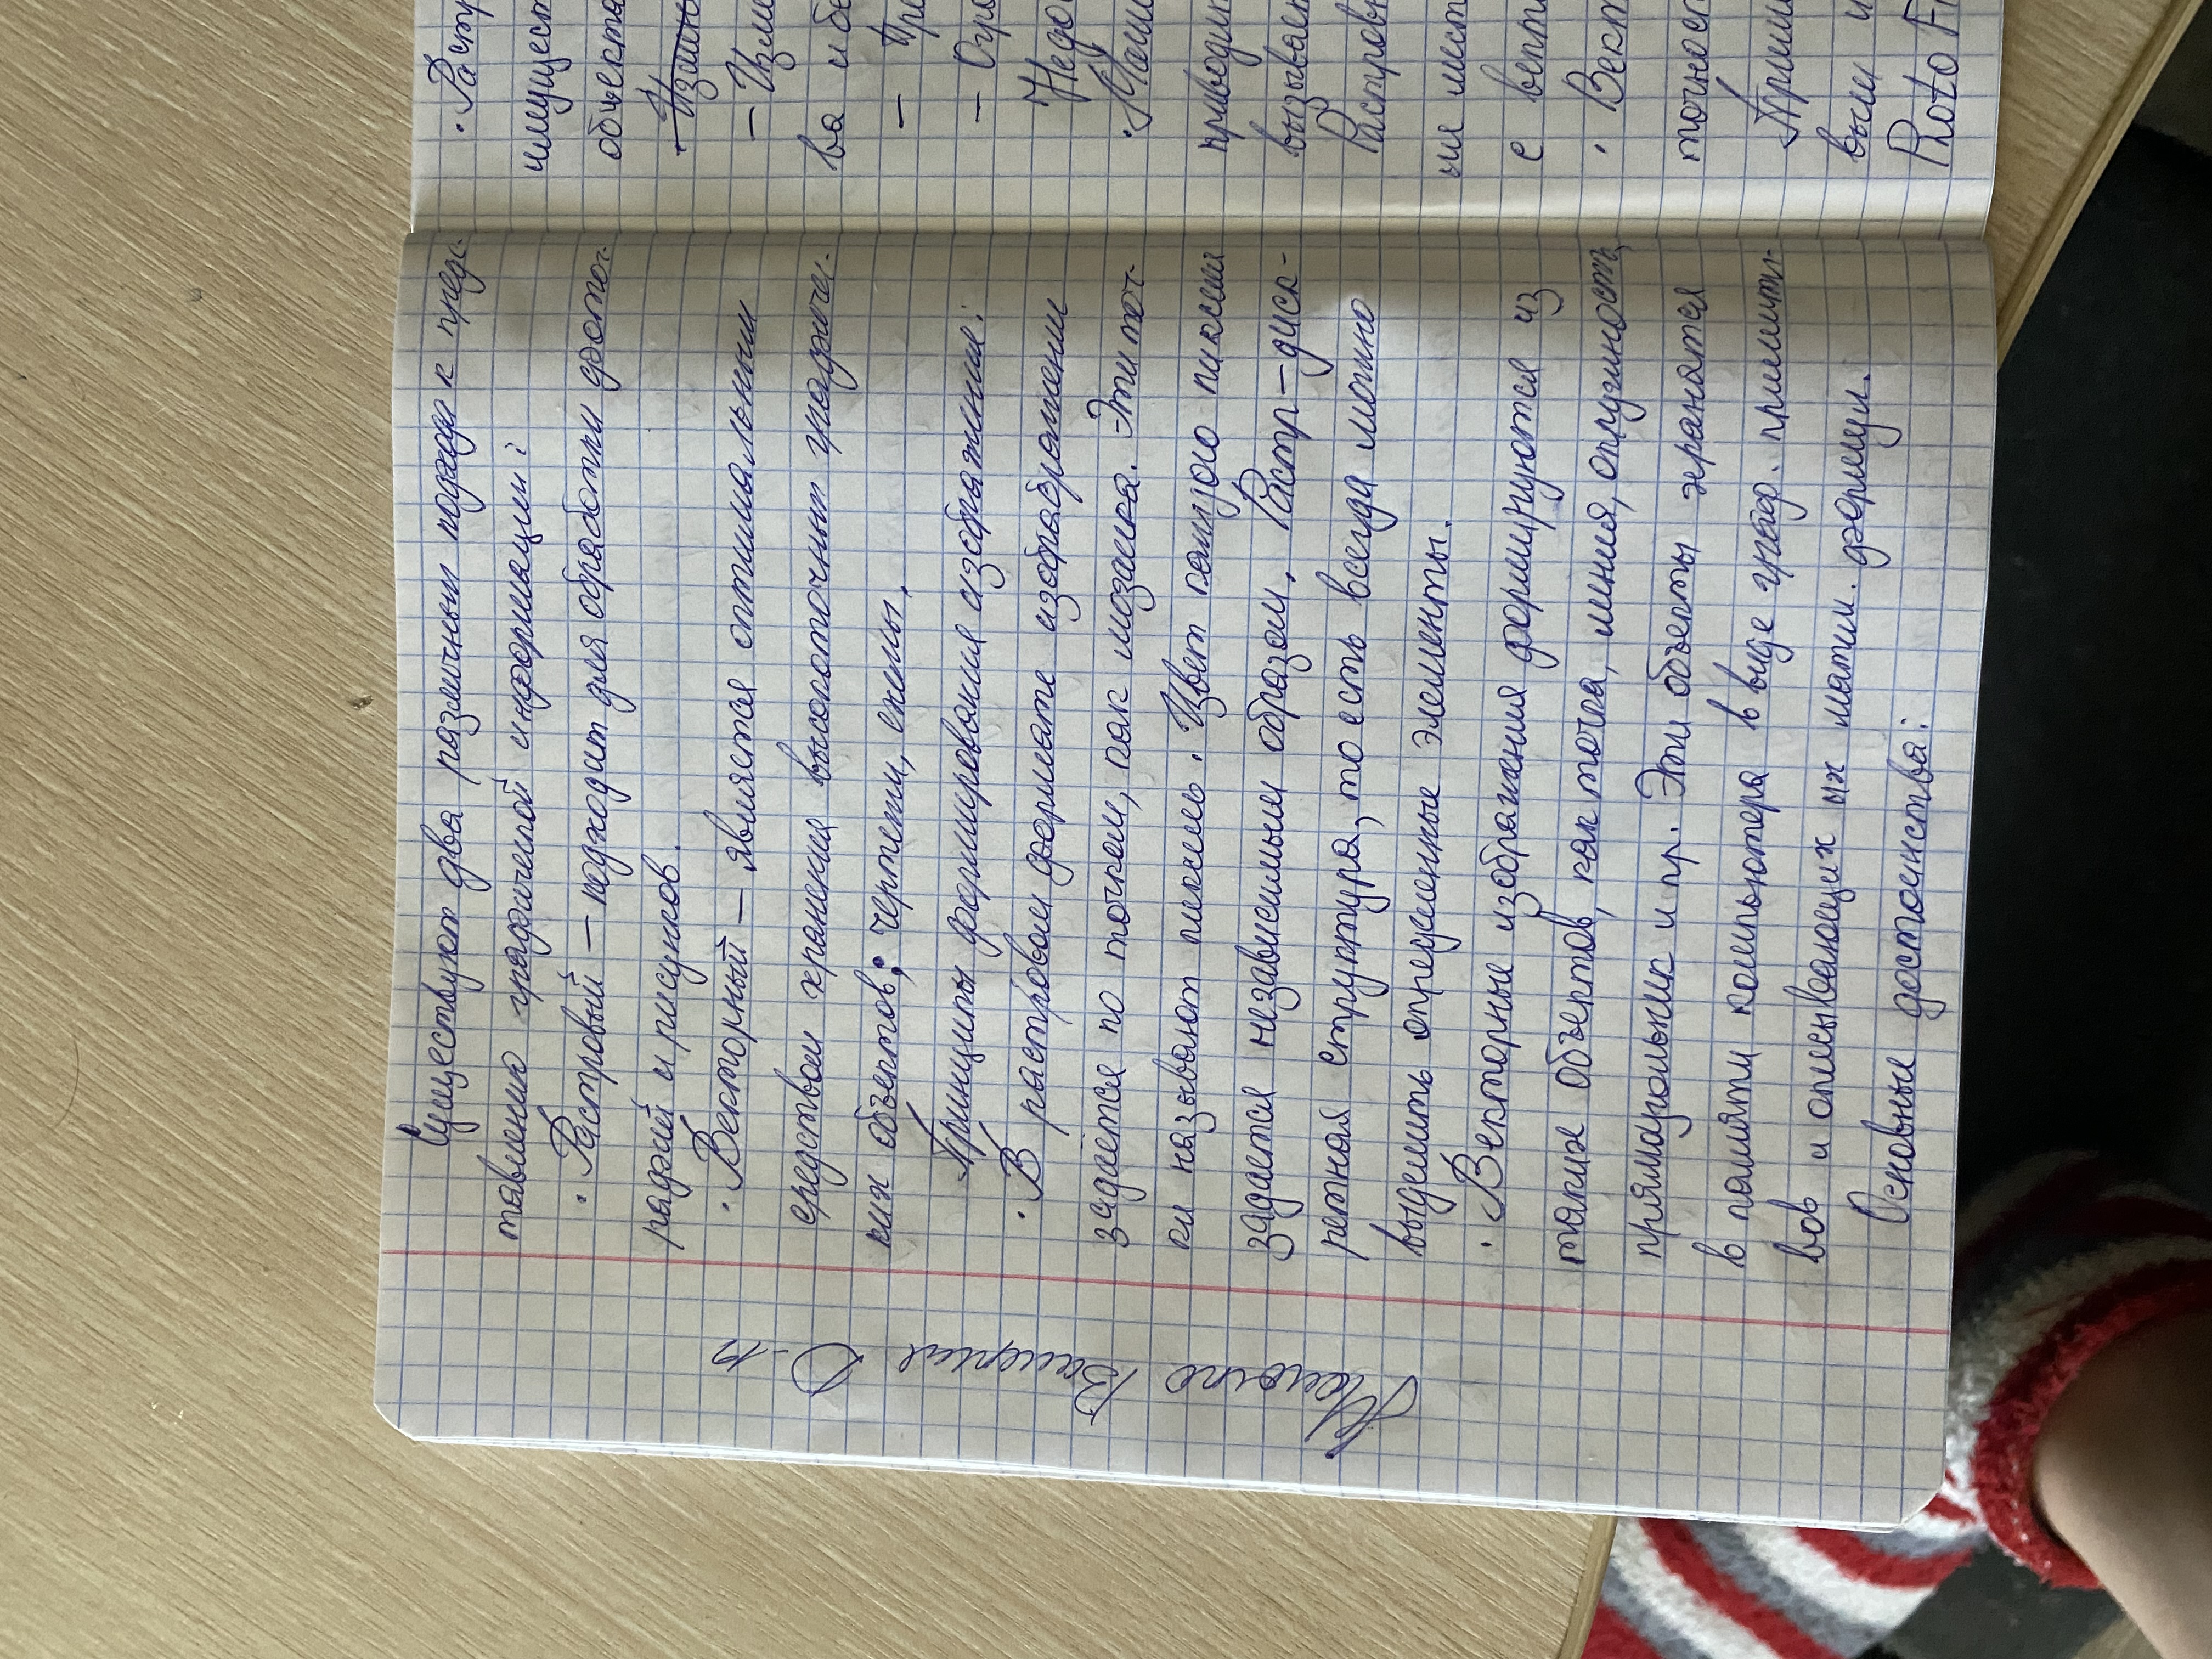 Существуют два различным подхода к пред-
тавлению графической информации:
· Растровый — подходит для обработки фотог-
рафий и рисунков.
· Векторный — является оптимальным
средством хранения высокоточных графичес-
ких объектов; чертежи, схемы.
Принципы формирования изображения:
· В растровом формате изображении
задается по точкам, как мозаика. Эти точ-
ки называют пиксель. Цвет каждого пикселя
задается независимым образом. Растр — диск-
ретная структура, то есть всегда можно
выделить определенные элементы.
· Векторные изображения формируются из
таких объектов, как точка, линия, окружность,
прямоугольник и пр. Эти объекты хранятся
в памяти компьютера в виде граф. примити-
вов и описывающих их матем. формул.
Основные достоинства:
Валерия
· Растр
имущест
объекта
— Изме
ва и бе
— Пре
— Огра
Недо
приводит
вызывает
Растровы
с вект
· Вект
точност
выи и